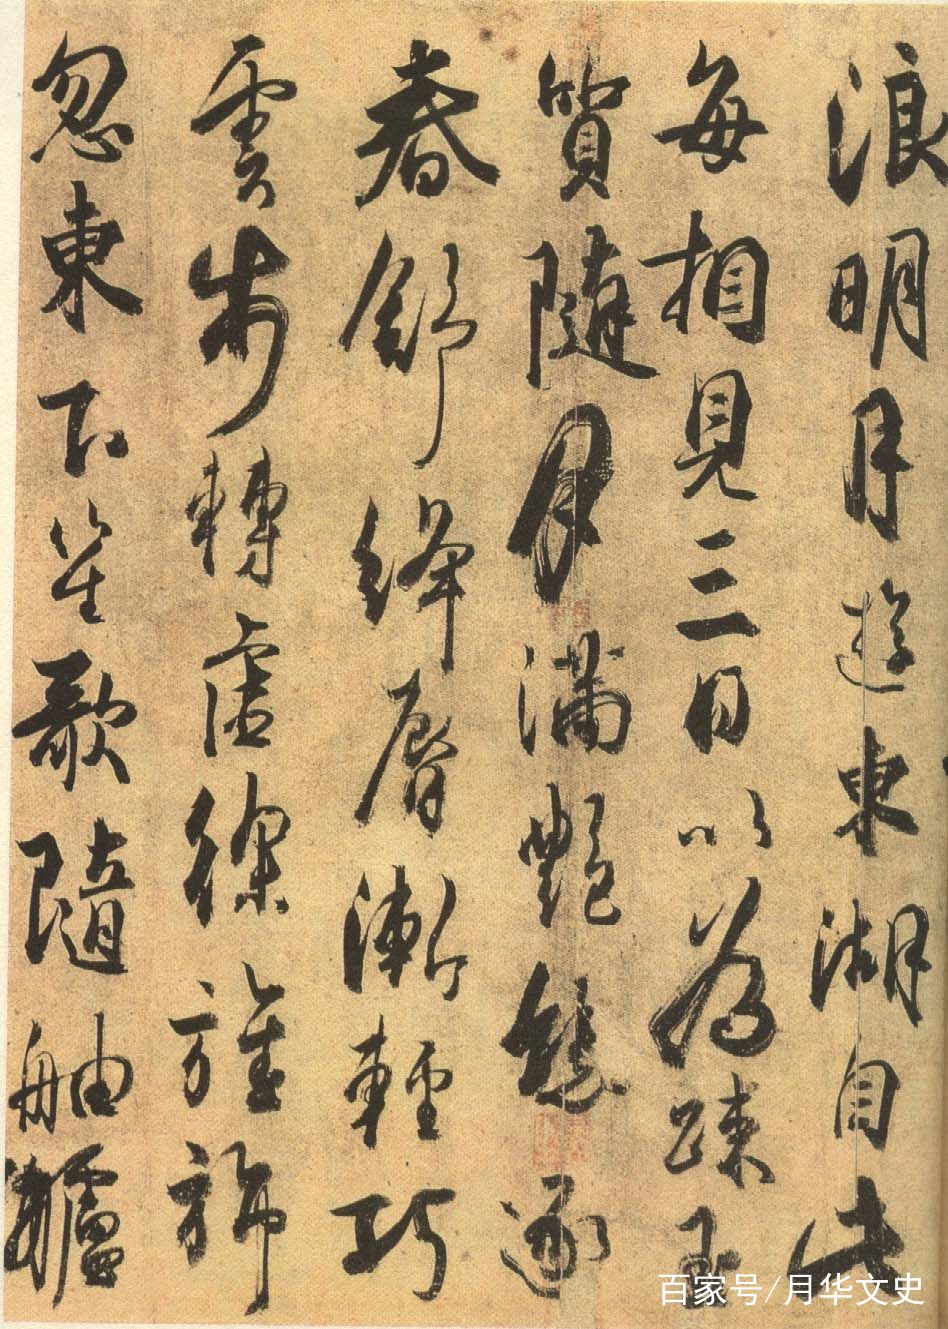 浪明月遊東湖自此
每相見三日以為踈玉
質隨月滿艷態逐
春舒絳脣漸輕巧
雲步轉虛徐旌旆
忽東下笙歌隨舳艫
百家号/月华文史